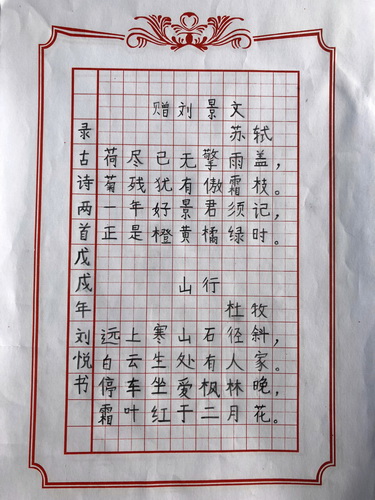 赠刘景文
苏轼
荷尽已无擎雨盖，
菊残犹有傲霜枝。
一年好景君须记，
正是橙黄橘绿时。
山行
杜牧
远上寒山石径斜，
白云生处有人家。
停车坐爱枫林晚，
霜叶红于二月花。
录古诗两首戊戌年刘悦书